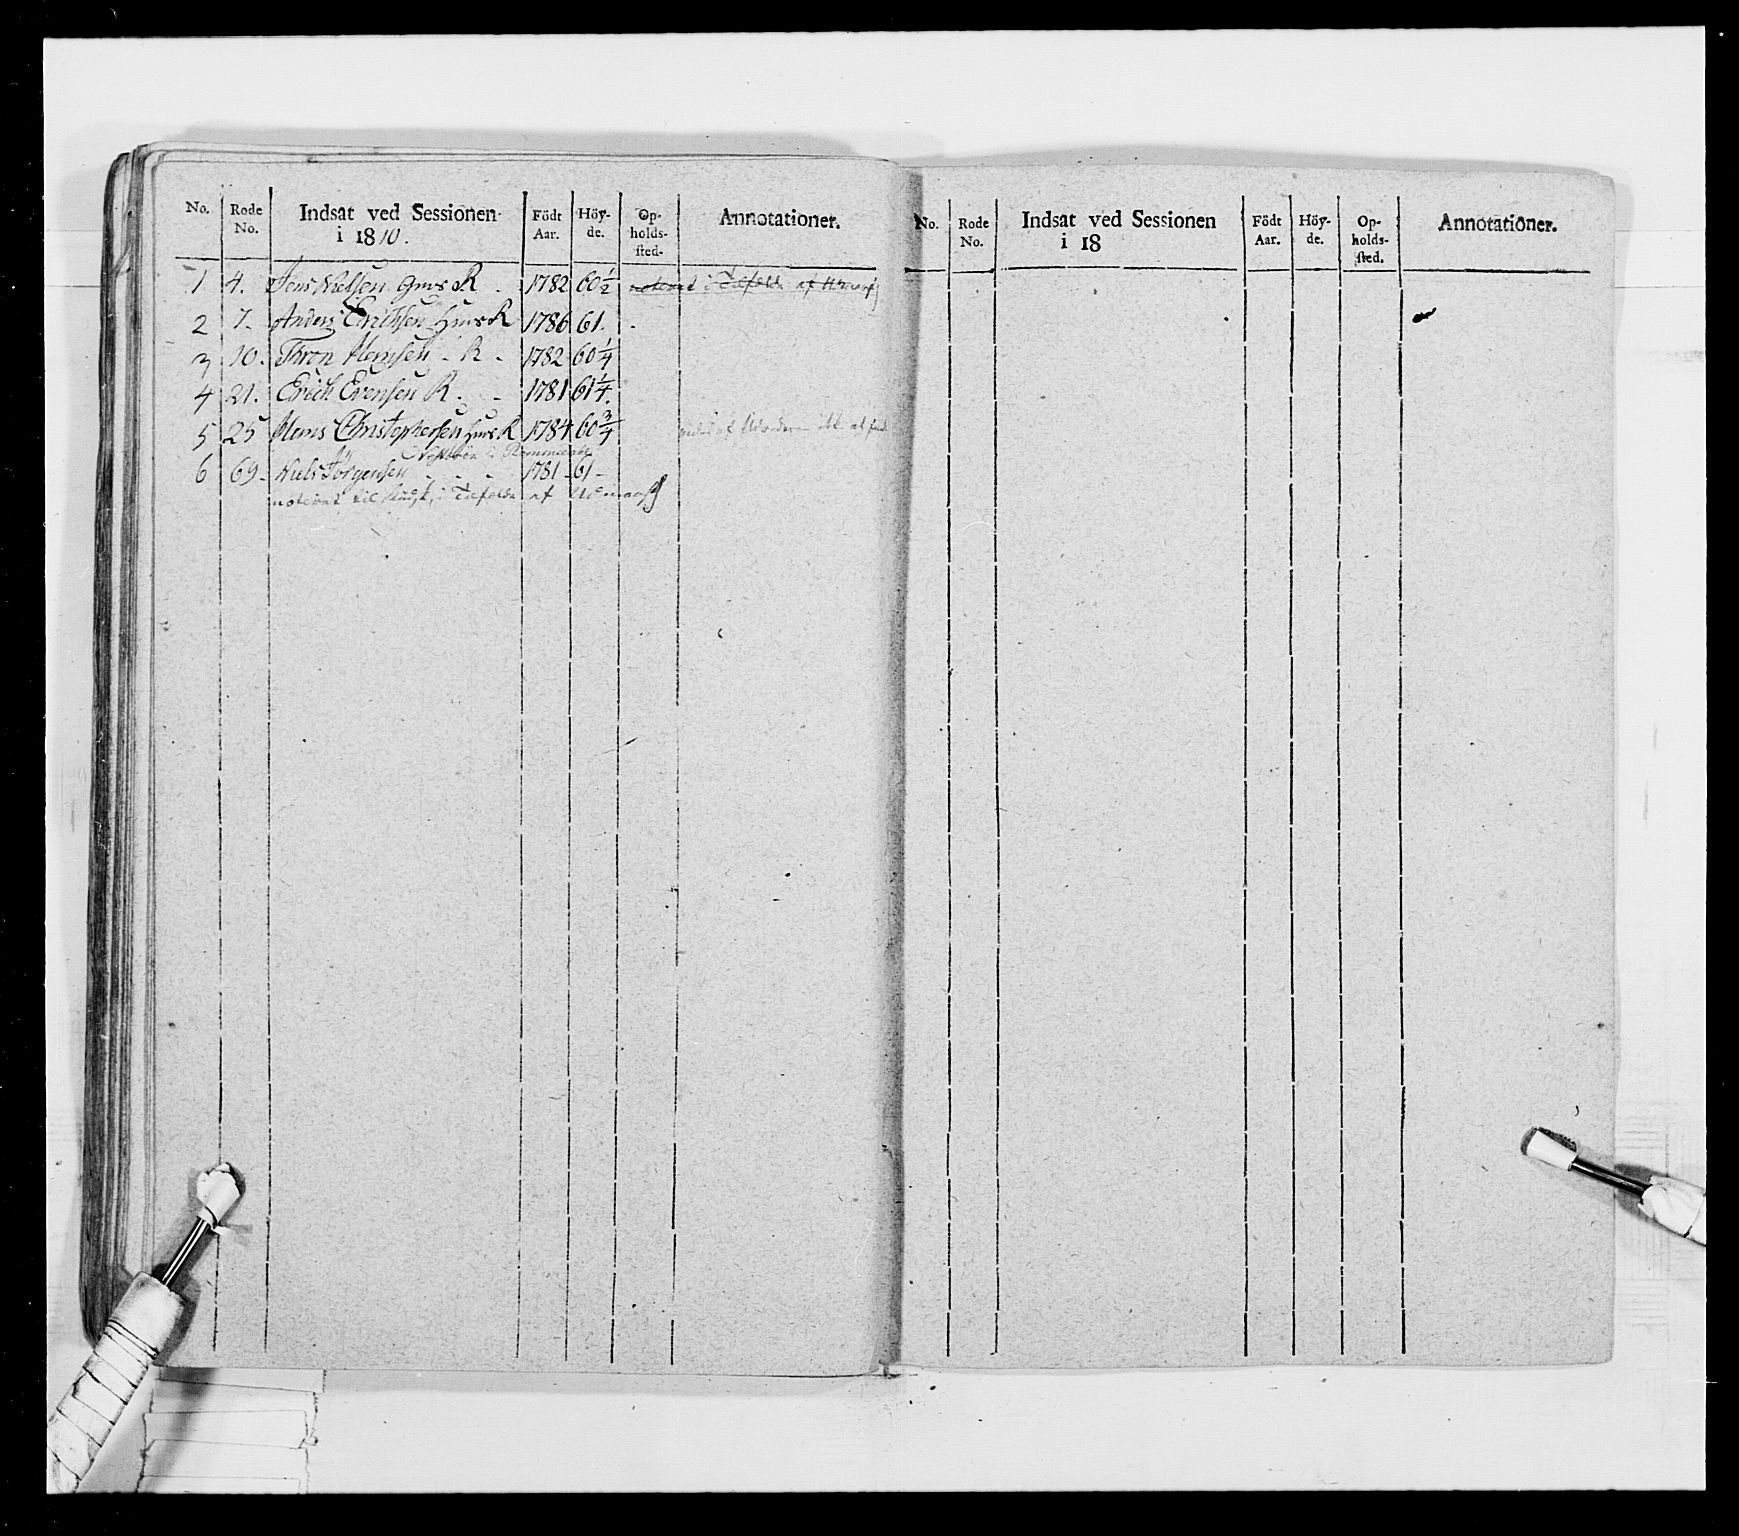 No. Rode No. Indsat ved Sessionen i 1810. Födt Aar. Höy-de. Op-holds-sted. Annotationer.
1 4. Jens Nielsen R - 1782 60 1/2 noteret i Tilfælde af
2 7- Anders Erichsen R 1786 61.
3 10. Thron Hansen - R - 1782 60 1/4
4 21. Erich Evensen R. - 1781 61 1/4.
5 25 Hans Christophersen R 1784 60 3/4
6 69- Niels Jörgensen - - - 1781 61-
noteret til i Tilfælde af
No. Rode No. Indsat ved Sessionen i 18 Födt Aar. Höy-de. Op-holds-sted. Annotationer.